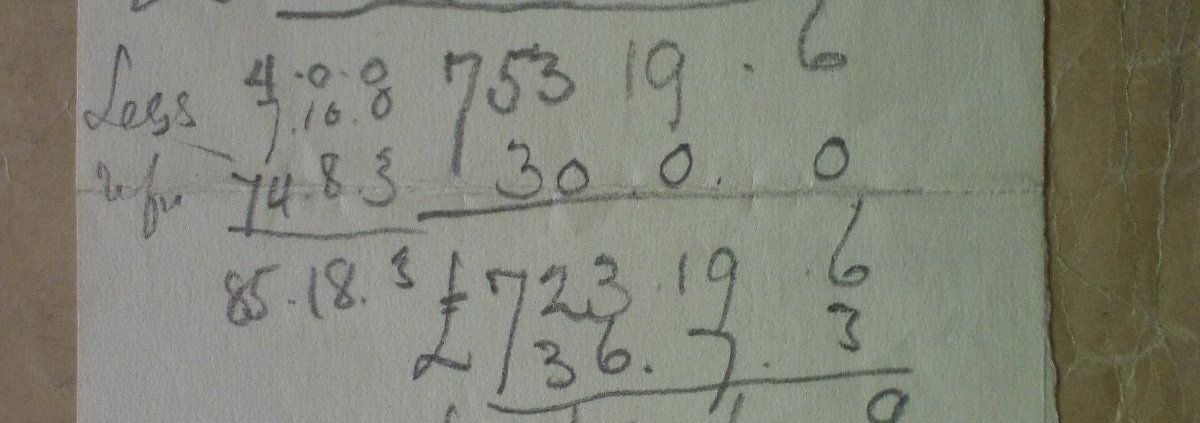 Less 4.0.0 753 19.6
7.10.0
74.8.3 30.0.0
85.18.3 £723.19.6
36.7.3
9